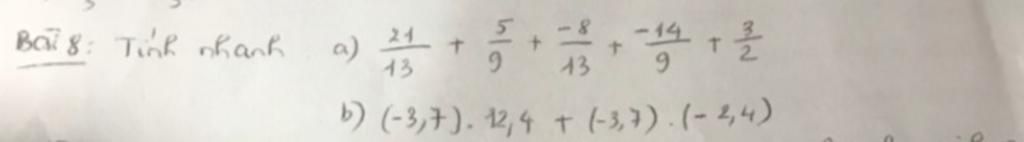 Bài 8: Tính nhanh a) 21/13 + 5/9 + -8/13 + -14/9 + 3/2
b) (-3,7). 12,4 + (-3,7).(-2,4)